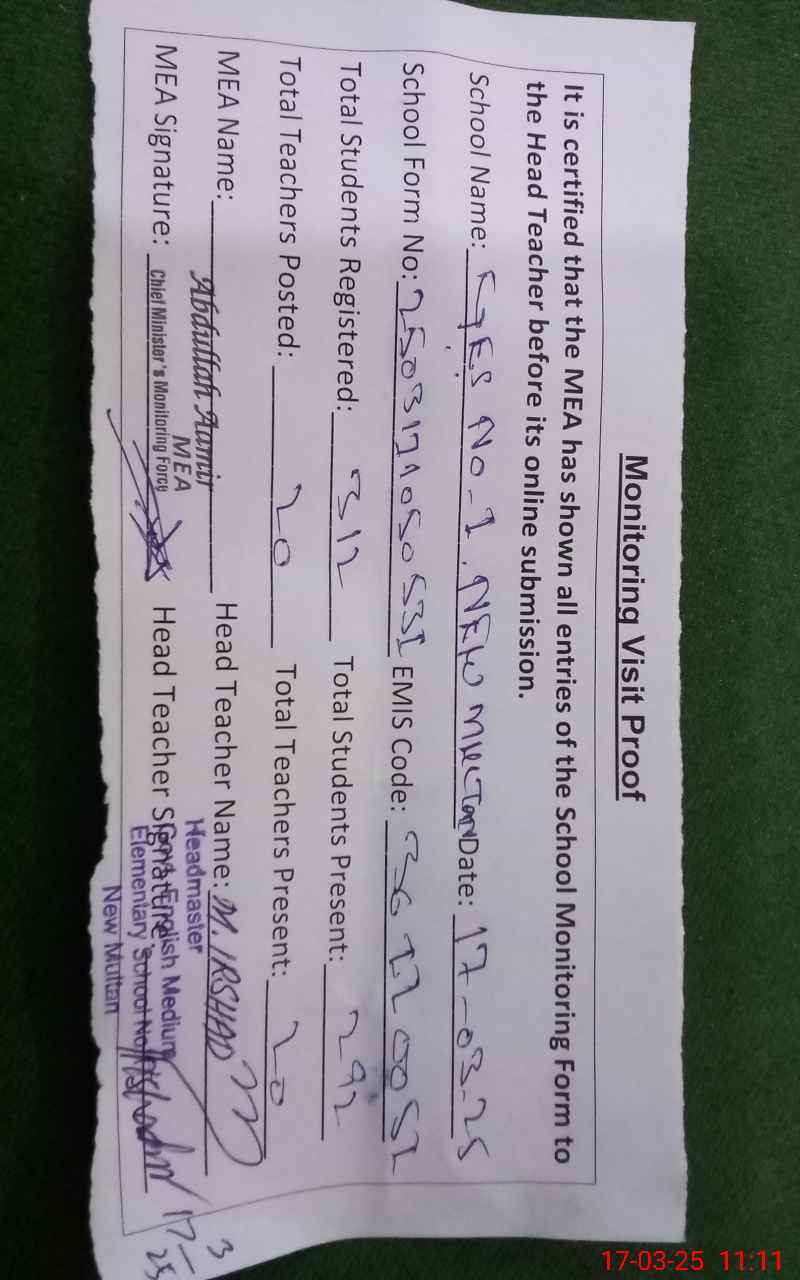 Monitoring Visit Proof
It is certified that the MEA has shown all entries of the School Monitoring Form to
the Head Teacher before its online submission.
School Name: No-1, NEW Date: 17-03-25
School Form No: EMIS Code:
Total Students Registered: 312 Total Students Present: 292
Total Teachers Posted: 20 Total Teachers Present: 20
MEA Name: Abdullah Aamir Head Teacher Name: M. IRSHAD
MEA
MEA Signature: Chief Minister's Monitoring Force Head Teacher Signature:
Headmaster
Govt. English Medium
Elementary School No.
New Multan
17-3
25
17-03-25 11:11